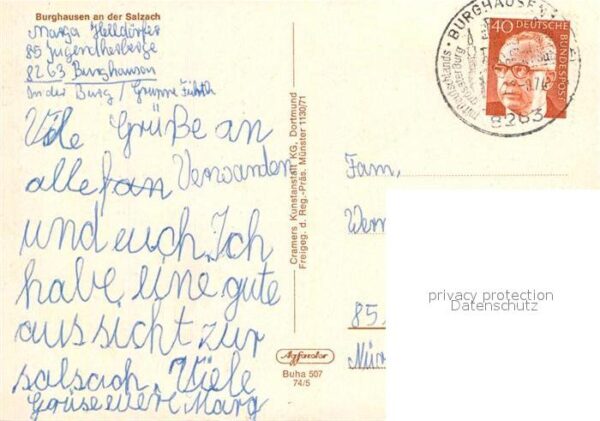 Burghausen an der Salzach
Marga Helldörfer
85 Jugendherberge
8263 Burghausen
In der Burg / Gruppe Fürth
Viele Grüße an
alle fan Verwanden
und euch. Ich
habe eine gute
aussicht zur
salsach. Viele
Grüse euere Marg
Cramers Kunstanstalt KG, Dortmund
Freigeg. d. Reg.-Präs. Münster 1130/71
Agfacolor
Buha 507
74/5
BURGHAUSEN
8263
40 DEUTSCHE BUNDESPOST
Fam,
Wern
85
Nür
privacy protection
Datenschutz